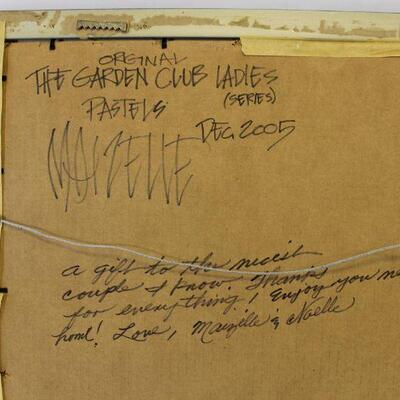 ORGINAL
THE GARDEN CLUB LADIES
(SERIES)
PASTELS
DEC 2005
MAIZELLE
a gift to the nicest
couple I know! Thanks
for everything! Enjoy you ne
home! Love, Maizelle & Noelle